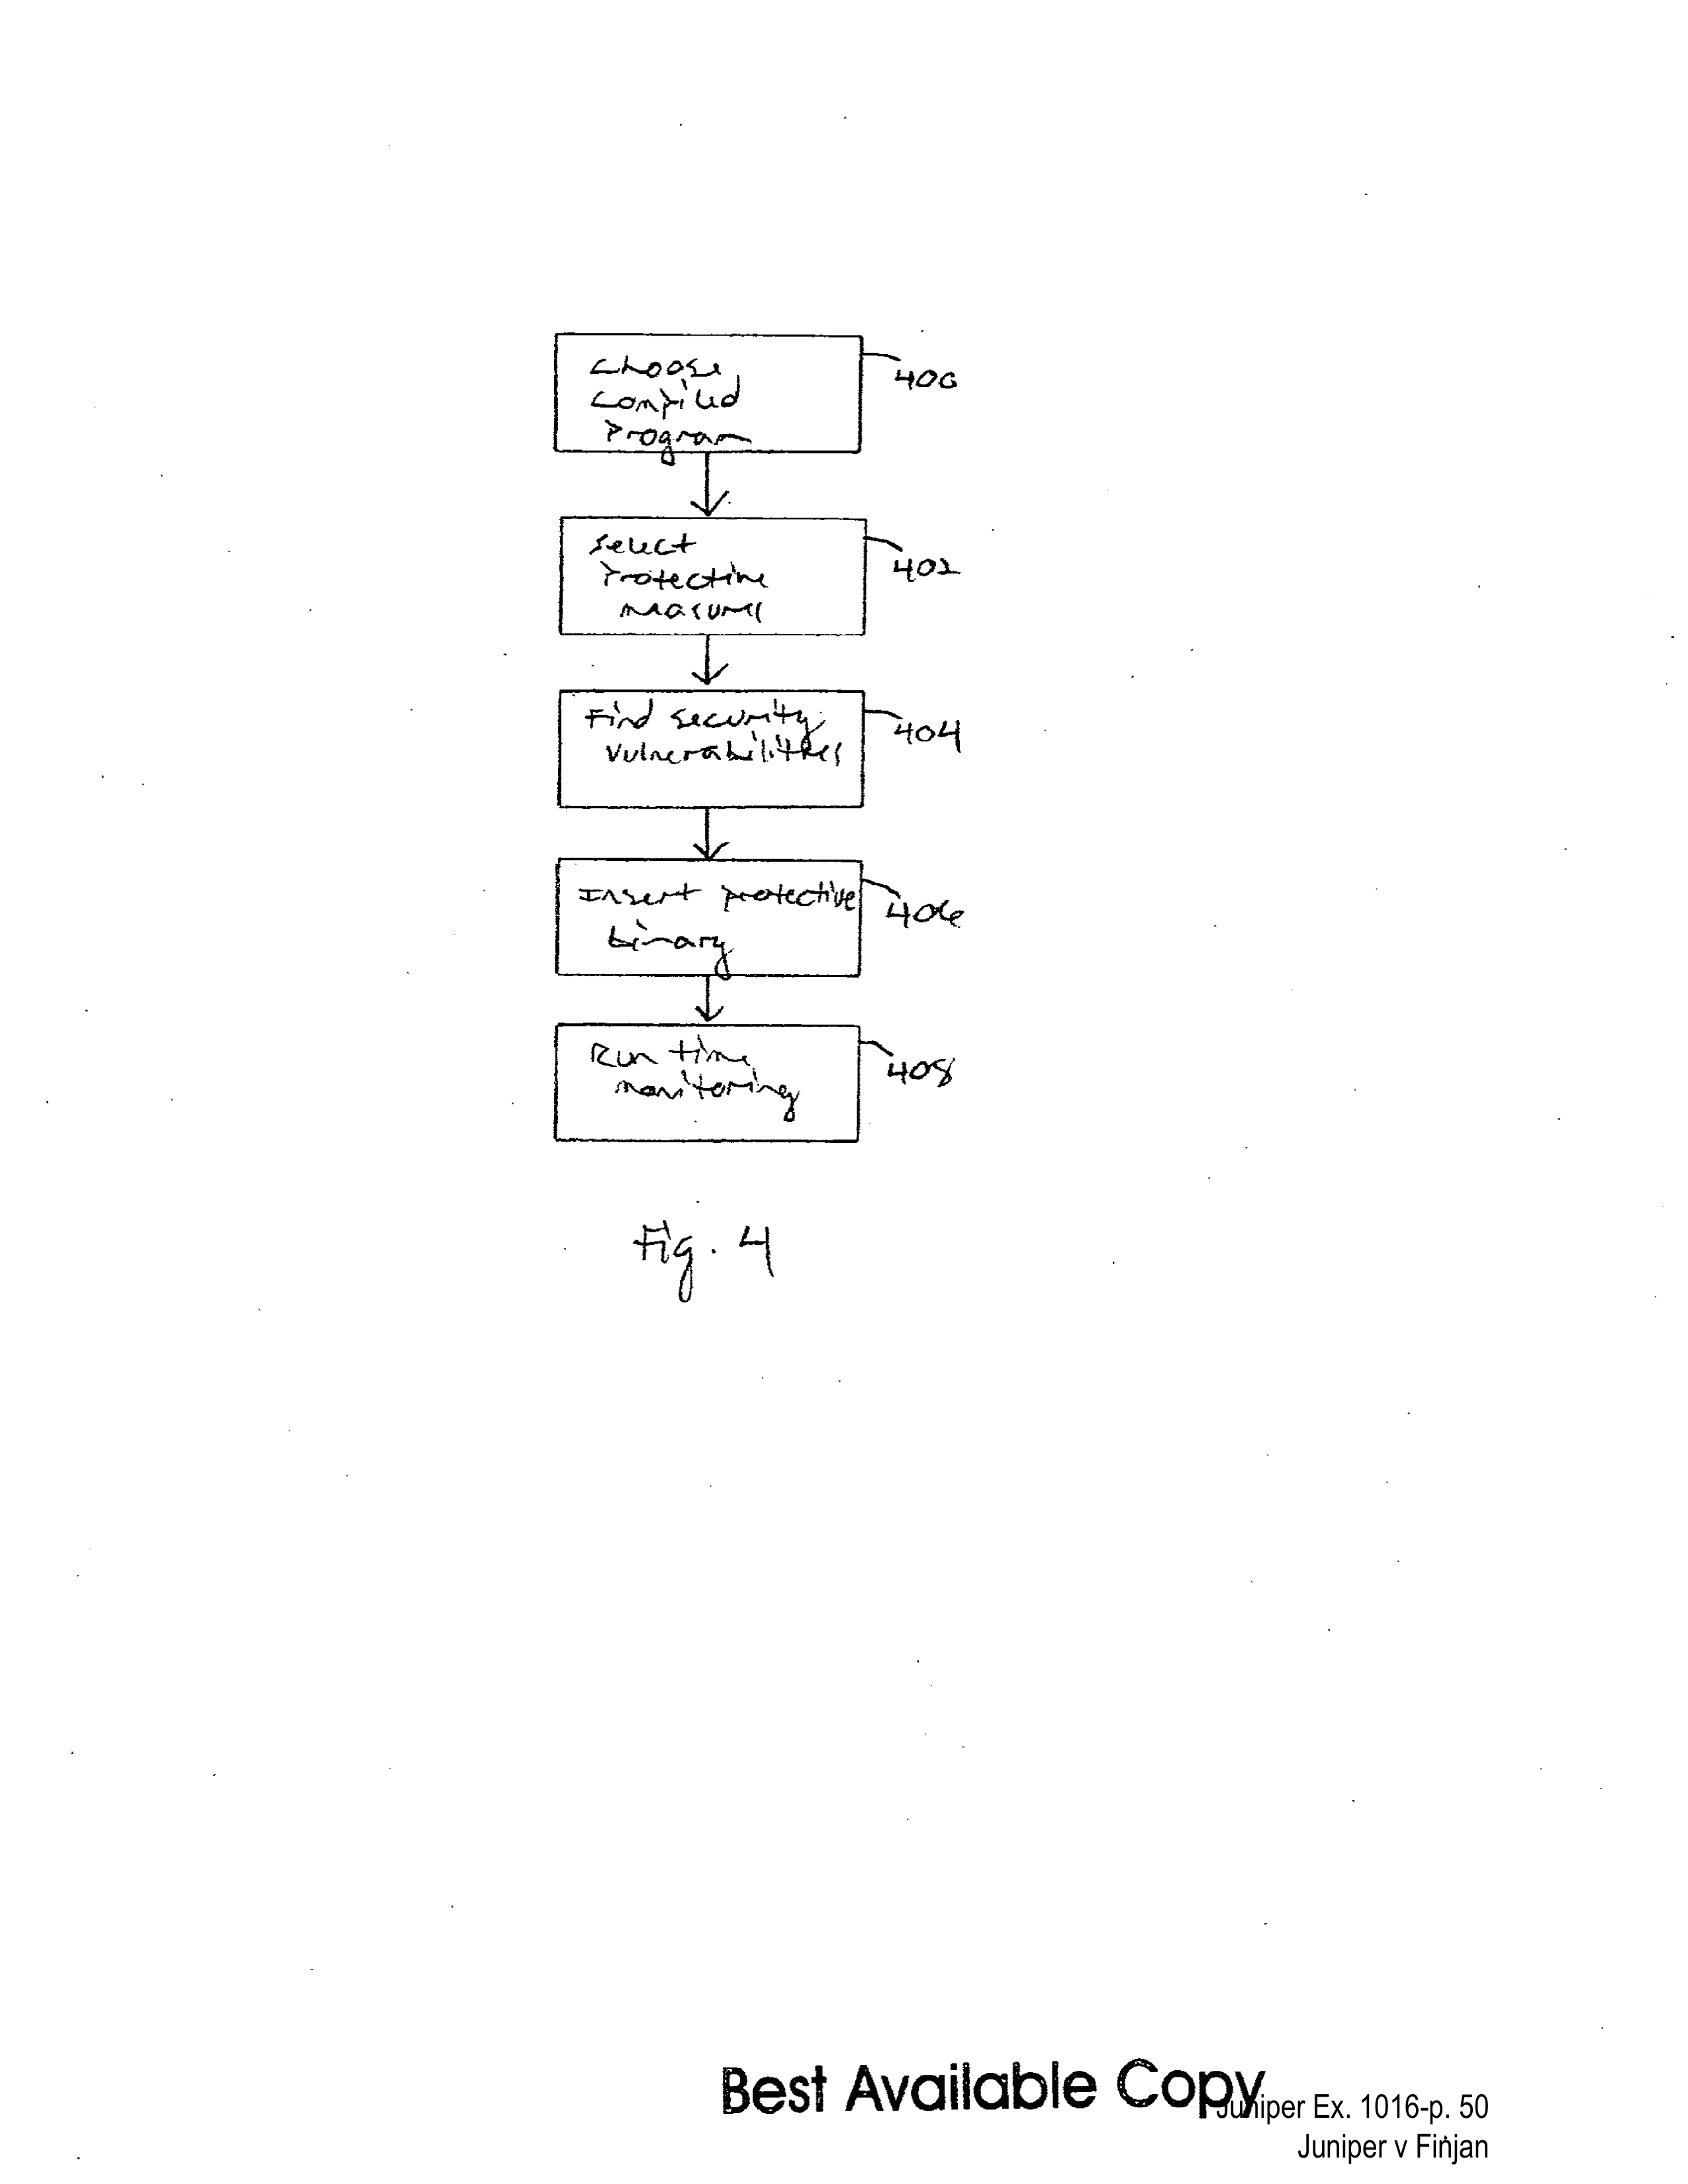 Choose
Compiled
Program
400
Select
Protective
measures
402
Find security
vulnerabilities
404
Insert protective
binary
406
Run time
monitoring
408
Fig. 4
Best Available Copy
Juniper Ex. 1016-p. 50
Juniper v Finjan